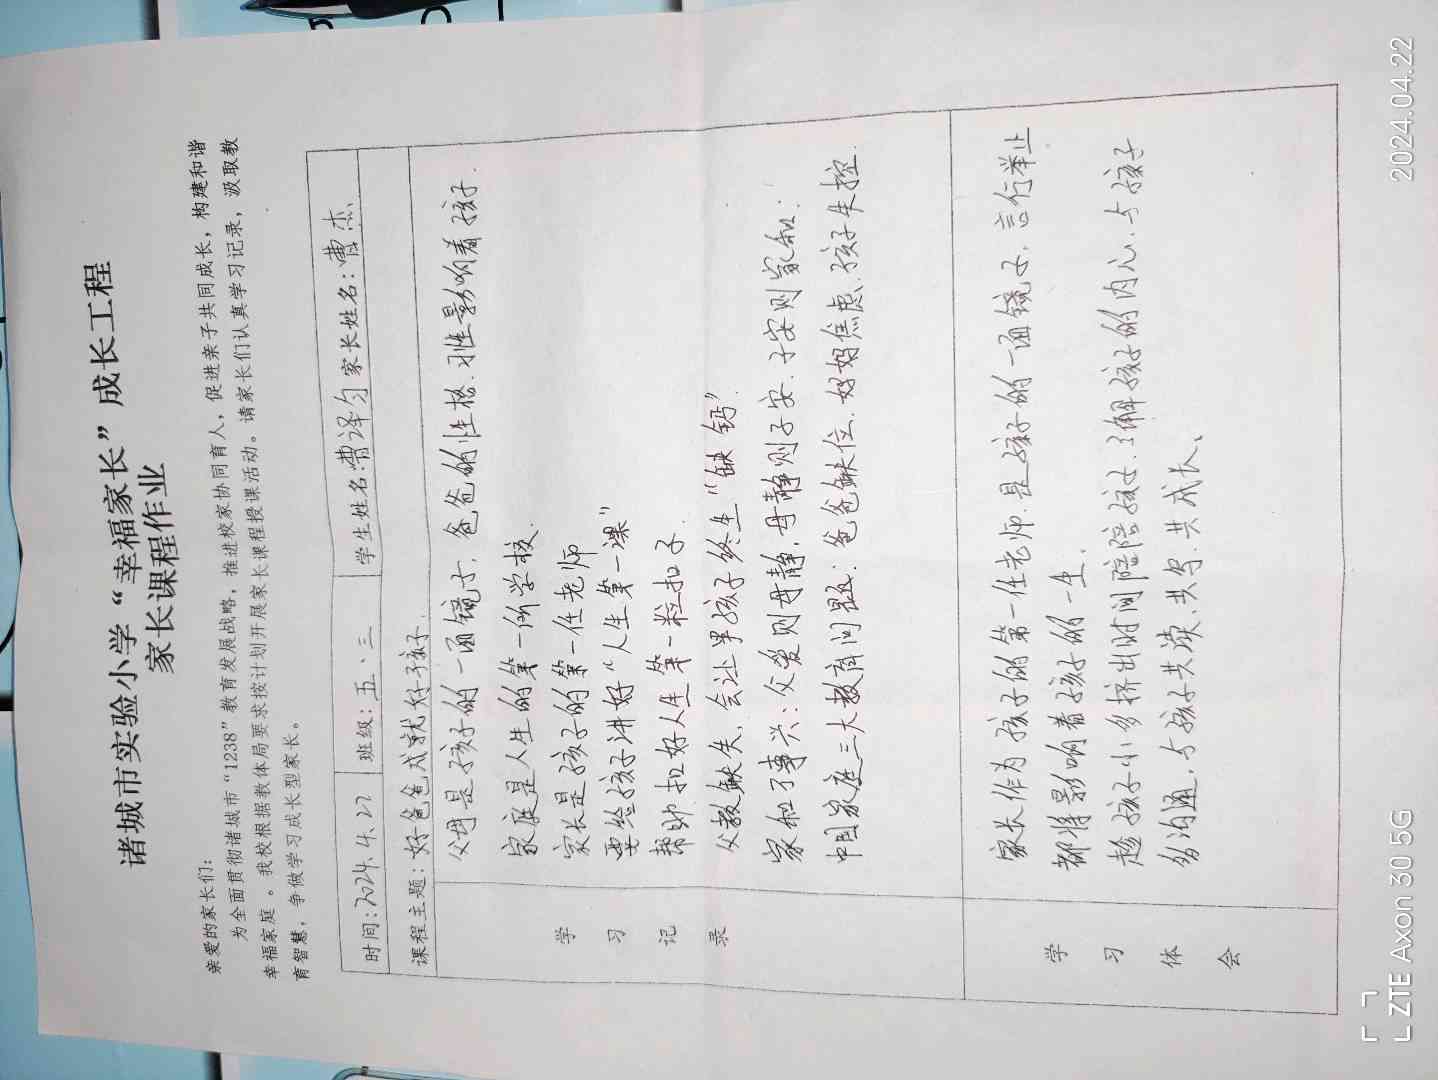 诸城市实验小学“幸福家长”成长工程
家长课程作业
亲爱的家长们：
为全面贯彻诸城市“1238”教育发展战略，推进校家协同育人，促进亲子共同成长，构建和谐
幸福家庭。我校根据教体局要求按计划开展家长课程授课活动。请家长们认真学习记录，汲取教
育智慧，争做学习成长型家长。
时间：2024.4.22 班级：五.三 学生姓名：曹译匀 家长姓名：曹杰
课程主题：好爸爸成就好孩子.
学习记录
父母是孩子的一面镜子，爸爸的性格.习性影响着孩子.
家庭是人生的第一所学校.
家长是孩子的第一任老师
要给孩子讲好“人生第一课”
帮助扣好人生第一粒扣子.
父教缺失，会让男孩子终生“缺钙”.
家和万事兴：父爱则母静，母静则子安.子安则家和：
中国家庭三大教育问题：爸爸缺位.妈妈焦虑.孩子失控.
学习体会
家长作为孩子的第一任老师.是孩子的一面镜子.言行举止
都将影响着孩子的一生.
趁孩子小多挤出时间陪陪孩子.了解孩子的内心.与孩子
多沟通，与孩子共读、共写.共成长、
ZTE Axon 30 5G
2024.04.22